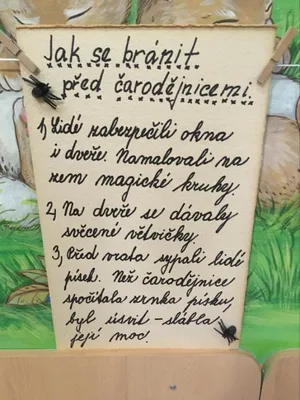 Jak se bránit
před čarodějnicemi.
1, Lidé zabezpečili okna
i dveře. Namalovali na
zem magické kruhy.
2, Na dveře se dávaly
svěcené větvičky.
3, Před vrata sypali lidé
písek. Než čarodějnice
spočítala zrnka písku,
byl úsvit - slábla
její moc.